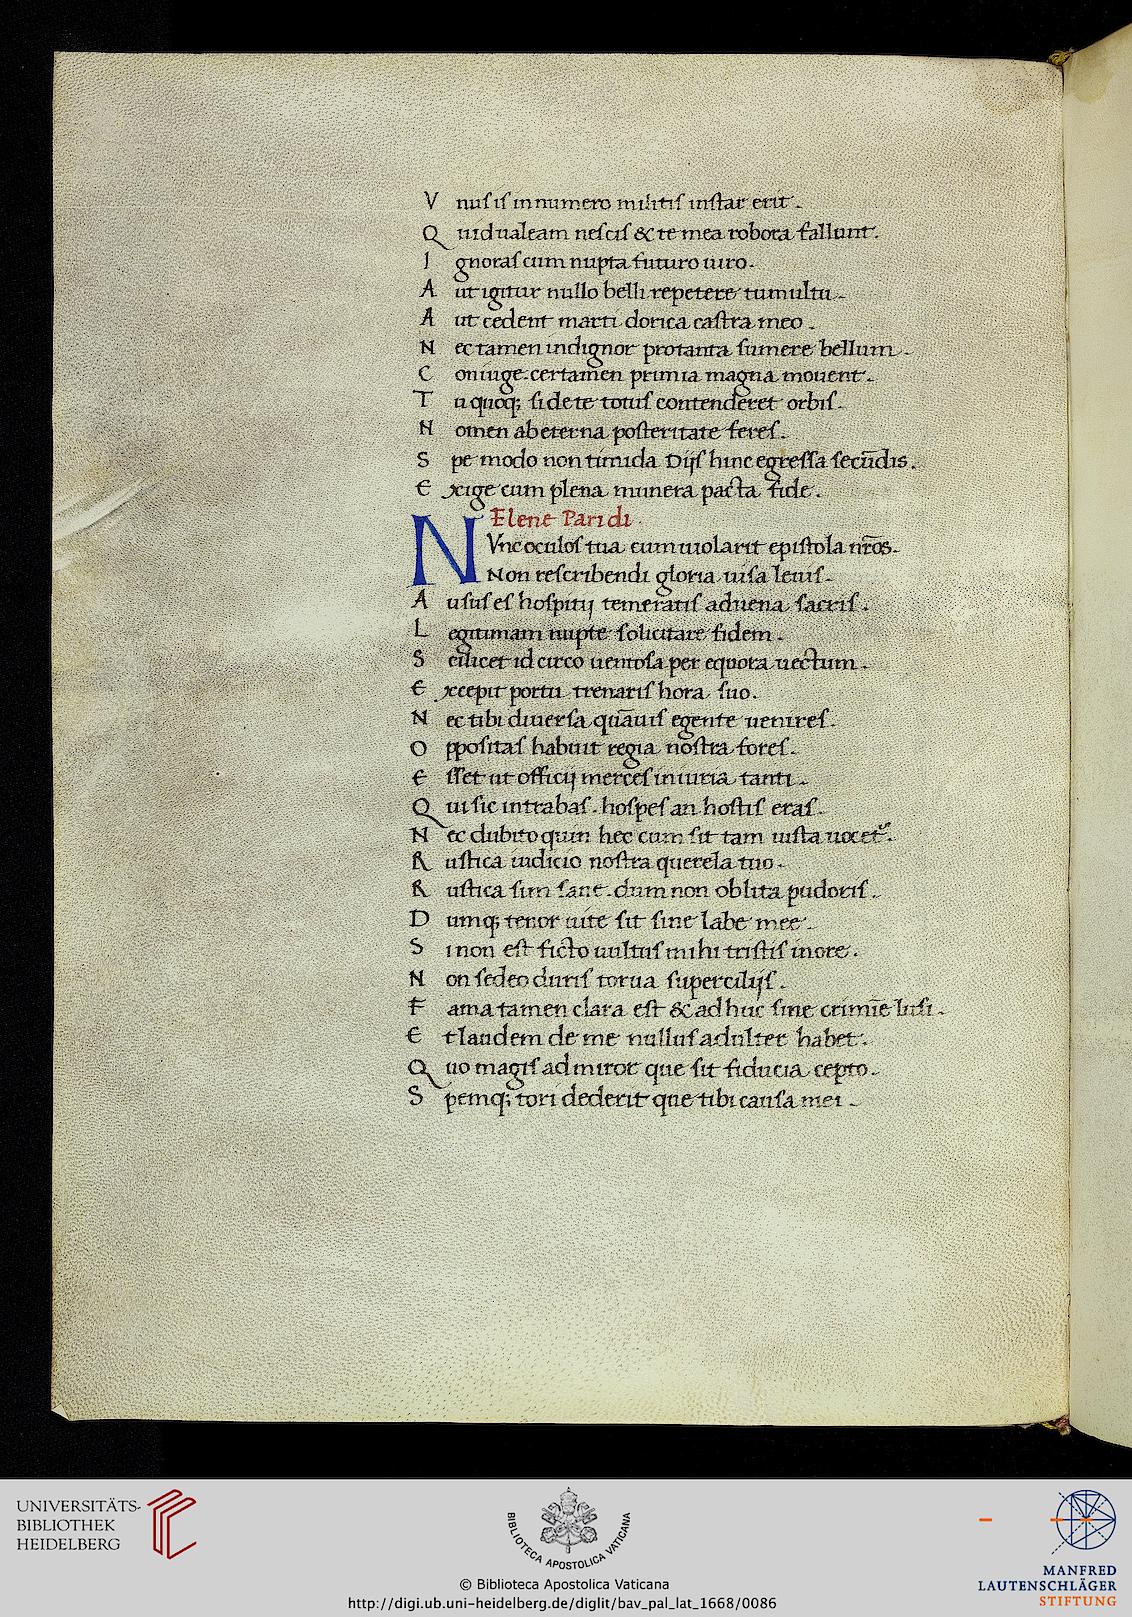 V nus is innumero militis instar erit.
Q uid ualeam nescis & te mea robora fallunt.
I gnoras cum nupta futuro uiro.
A ut igitur nullo belli repetere tumultu.
A ut cedent marti dorica castra meo.
N ec tamen indignor pro tanta sumere bellum.
C oniuge. certamen primia magna mouent.
T u quoq; si de te totus contenderet orbis.
N omen ab eterna posteritate feres.
S pe modo non timida Dijs hinc egressa secūdis.
E xige cum plena munera pacta fide.
Elene Paridi.
N Vnc oculos tua cum uiolarit epistola nr̄os.
Non rescribendi gloria uisa leuis.
A usus es hospitij temeratis aduena sacris.
L egitimam nupte solicitare fidem.
S cilicet id circo uentosa per equora uectum.
E xcepit portu trenaris hora suo.
N ec tibi diuersa quāuis e gente uenires.
O ppositas habuit regia nostra fores.
E sset ut officij merces iniuria tanti.
Q ui sic intrabas. hospes an hostis eras.
N ec dubito quin hec cum sit tam iusta uocet᷑.
R ustica iudicio nostra querela tuo.
R ustica sim sane. dum non oblita pudoris.
D umq; tenor uite sit sine labe mee.
S i non est ficto uultus mihi tristis inore.
N on sedeo duris torua supercilijs.
F ama tamen clara est & adhuc sine crimīe lusi.
E t laudem de me nullus adulter habet.
Q uo magis admiror que sit fiducia cepto.
S pemq; tori dederit que tibi causa mei.
UNIVERSITÄTS-
BIBLIOTHEK
HEIDELBERG
BIBLIOTECA APOSTOLICA VATICANA
© Biblioteca Apostolica Vaticana
http://digi.ub.uni-heidelberg.de/diglit/bav_pal_lat_1668/0086
MANFRED
LAUTENSCHLÄGER
STIFTUNG